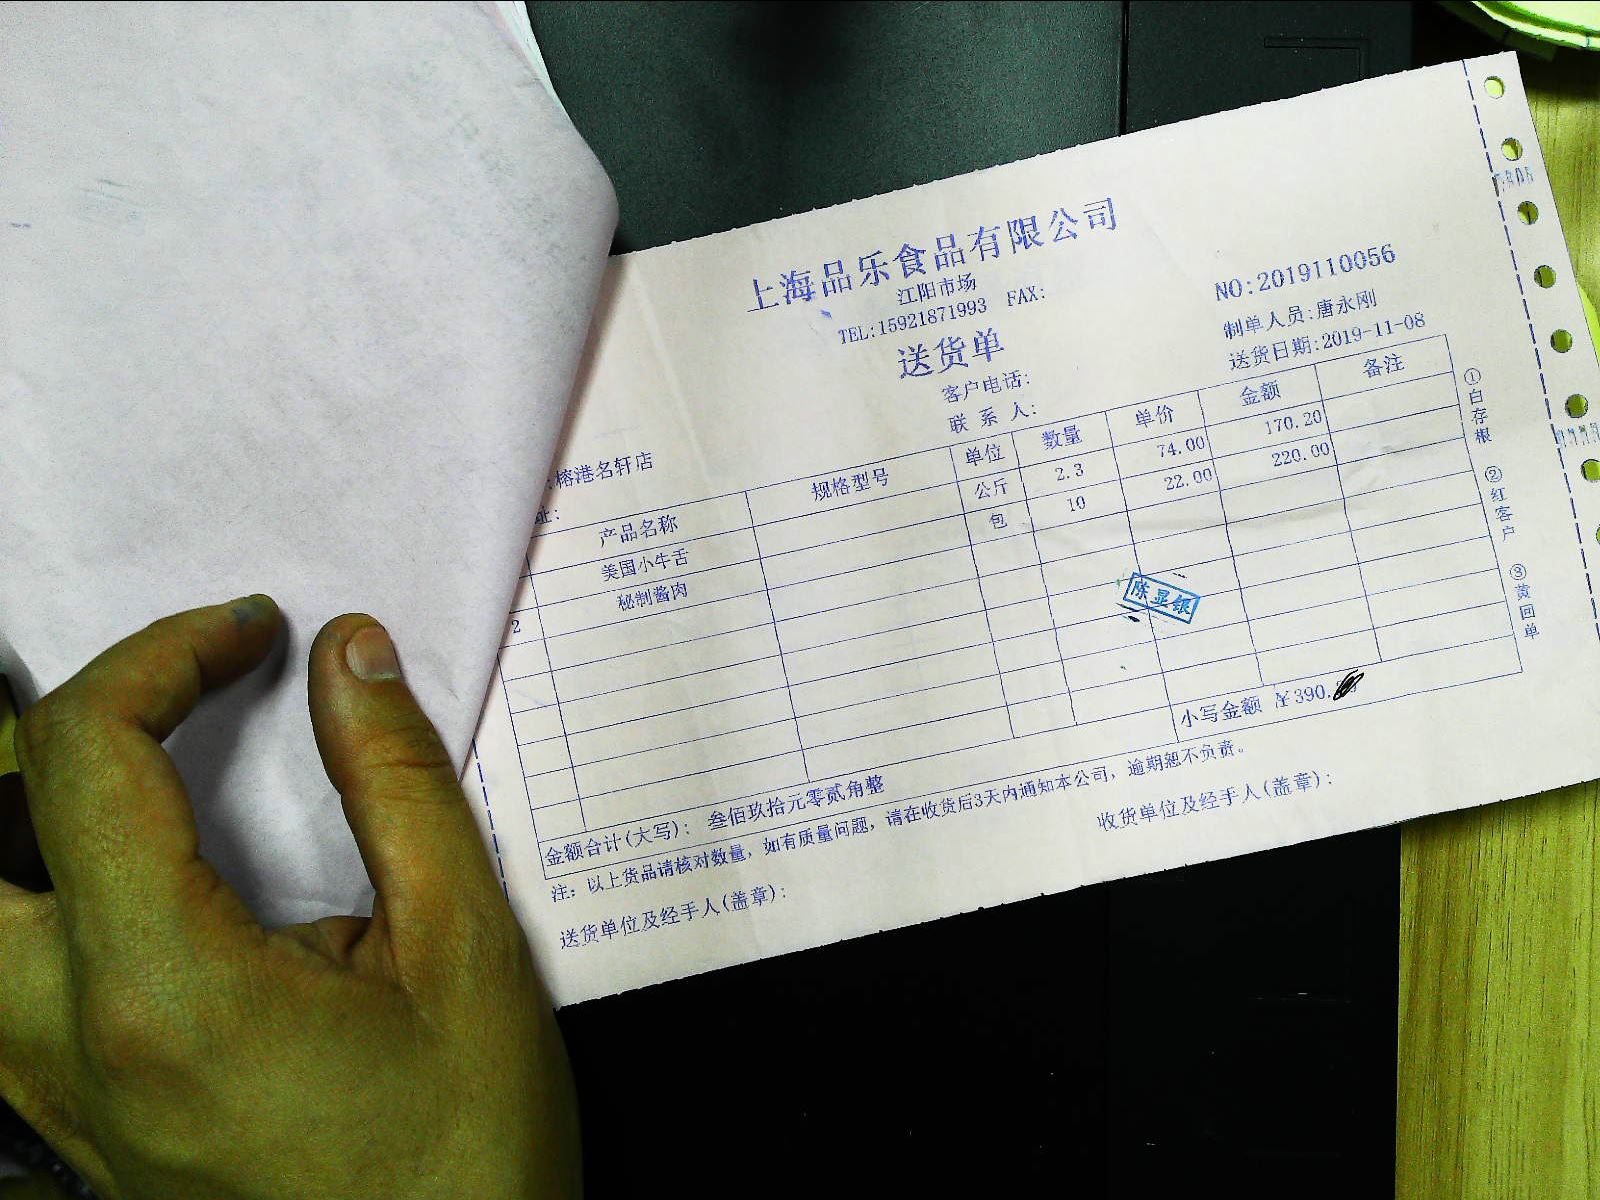 上海品乐食品有限公司
江阳市场
TEL:15921871993 FAX:
送货单
NO:2019110056
制单人员:唐永刚
送货日期:2019-11-08
客户电话:
联 系 人:
:榕港名轩店
址:
产品名称 规格型号 单位 数量 单价 金额 备注
美国小牛舌 公斤 2.3 74.00 170.20
2 秘制酱肉 包 10 22.00 220.00
陈显银
小写金额 ¥390.
金额合计(大写): 叁佰玖拾元零贰角整
注: 以上货品请核对数量, 如有质量问题, 请在收货后3天内通知本公司, 逾期恕不负责。
送货单位及经手人(盖章):
收货单位及经手人(盖章):
①白存根 ②红客户 ③黄回单